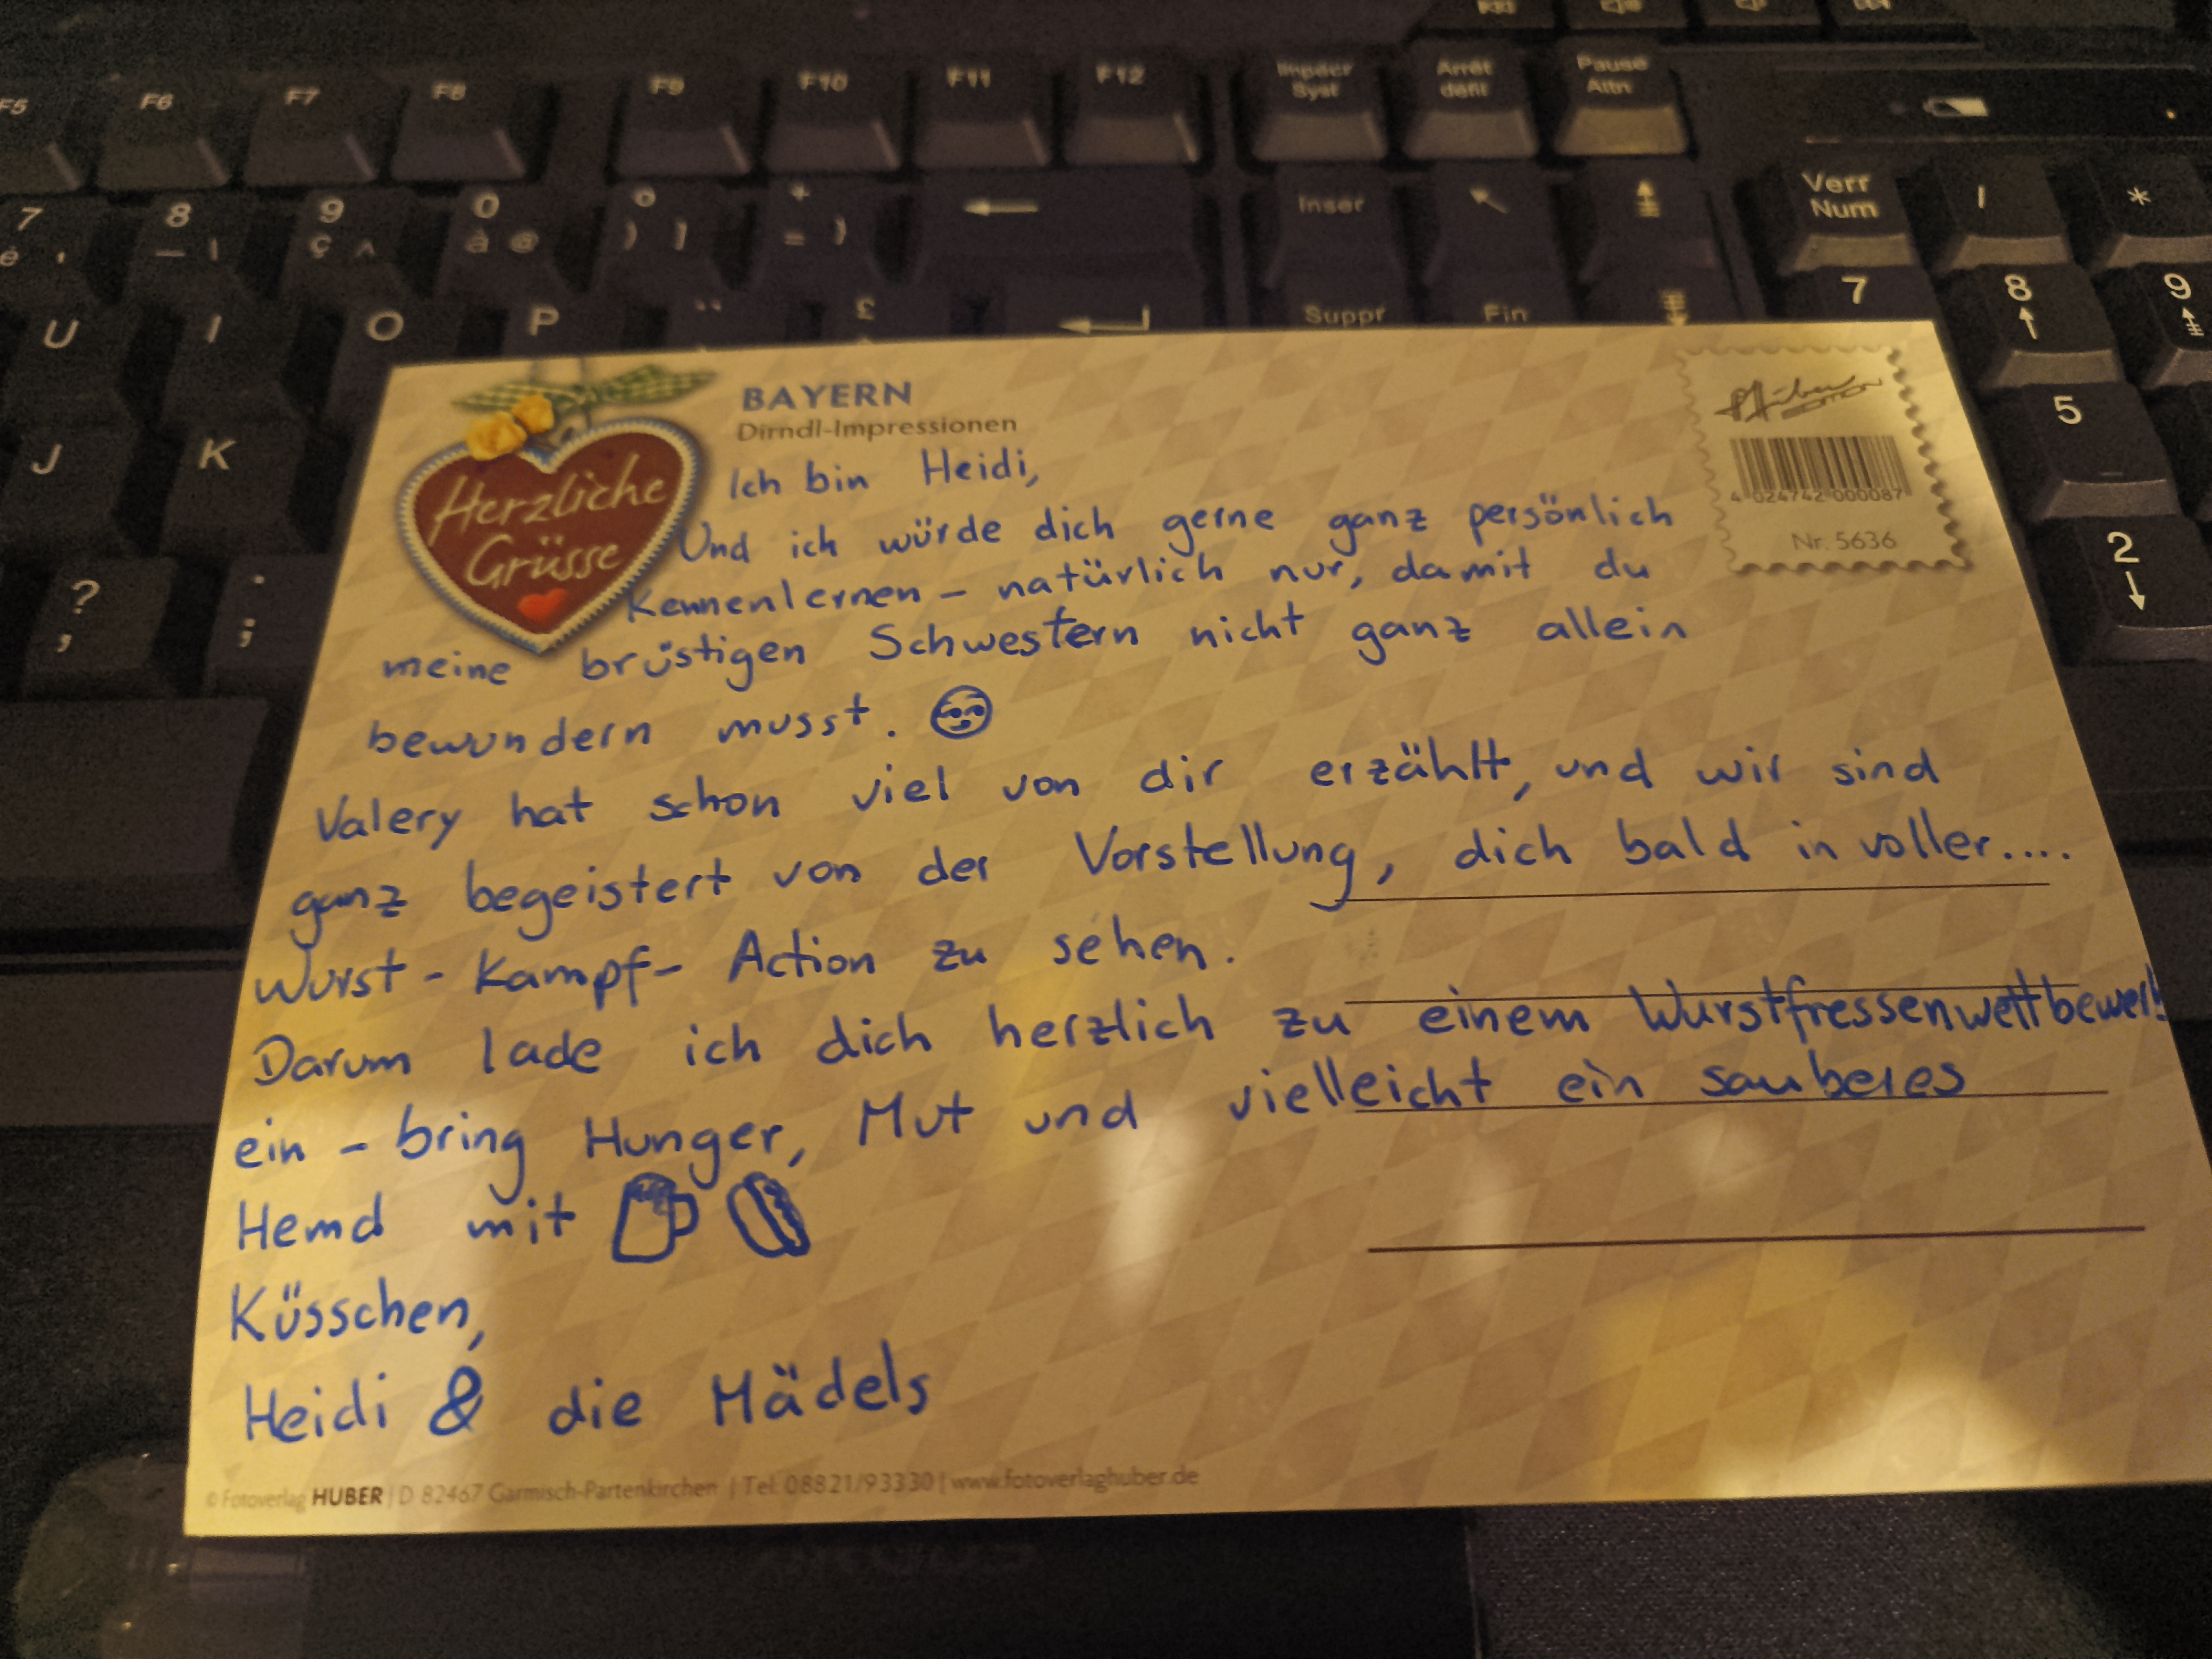 F5 F6 F7 F8 F9 F10 F11 F12 Impécr Syst Arrêt défil Pause Attn
7 è 8 _ \ 9 ç ^ 0 à @ ° ) ] + = } Inser Verr Num / *
U I O P £ Suppr Fin 7 8 9
J K 5
? , . ; 2
Herzliche
Grüsse
BAYERN
Dirndl-Impressionen
4 024742 000087
Nr. 5636
Ich bin Heidi,
Und ich würde dich gerne ganz persönlich
kennenlernen – natürlich nur, damit du
meine brüstigen Schwestern nicht ganz allein
bewundern musst.
Valery hat schon viel von dir erzählt, und wir sind
ganz begeistert von der Vorstellung, dich bald in voller....
Wurst-Kampf-Action zu sehen.
Darum lade ich dich herzlich zu einem Wurstfressenwettbewerb
ein – bring Hunger, Mut und vielleicht ein sauberes
Hemd mit
Küsschen,
Heidi & die Mädels
© Fotoverlag HUBER | D 82467 Garmisch-Partenkirchen | Tel: 08821/93330 | www.fotoverlaghuber.de